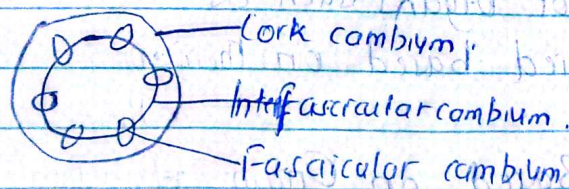 Cork cambium.
Interfascicular cambium.
Fasciculor cambium